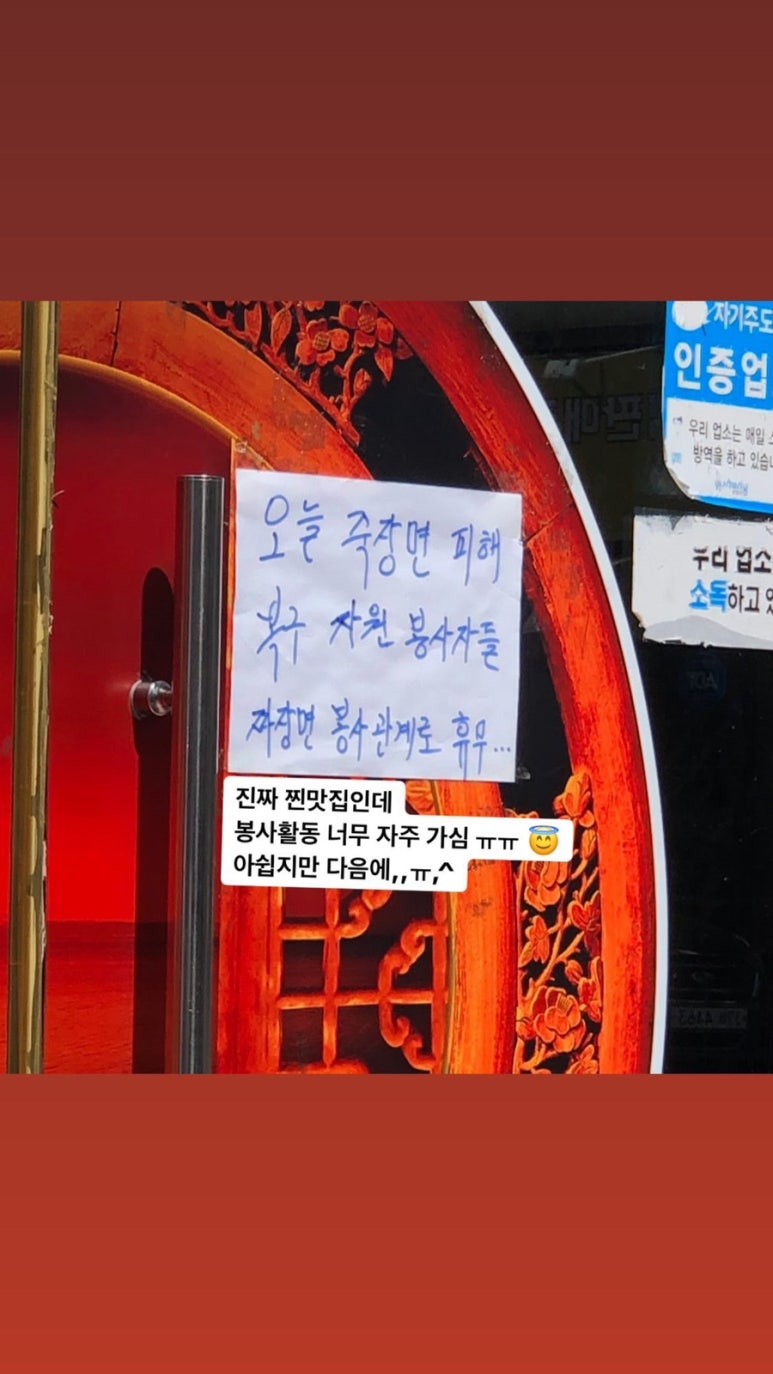 오늘 죽장면 피해
복구 자원 봉사자들
짜장면 봉사관계로 휴무...
진짜 찐맛집인데
봉사활동 너무 자주 가심 ㅠㅠ 😇
아쉽지만 다음에,,ㅠ,^
자기주도
인증업
우리 업소는 매일
방역을 하고 있습니
우리 업소
소독하고 있